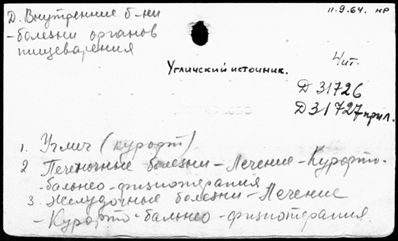 Д. Внутренние б-ни
11-9.64. нр
-болезни органов
пищеварения
Углинский источник.
Чит.
Д 31726
Д31727 прил.
1. Углич (курорт)
2 Печеночные болезни - Лечение - Курорто-
бальнео-физиотерапия
3. Желудочные болезни - Лечение
- Курорто-бальнео-физиотерапия